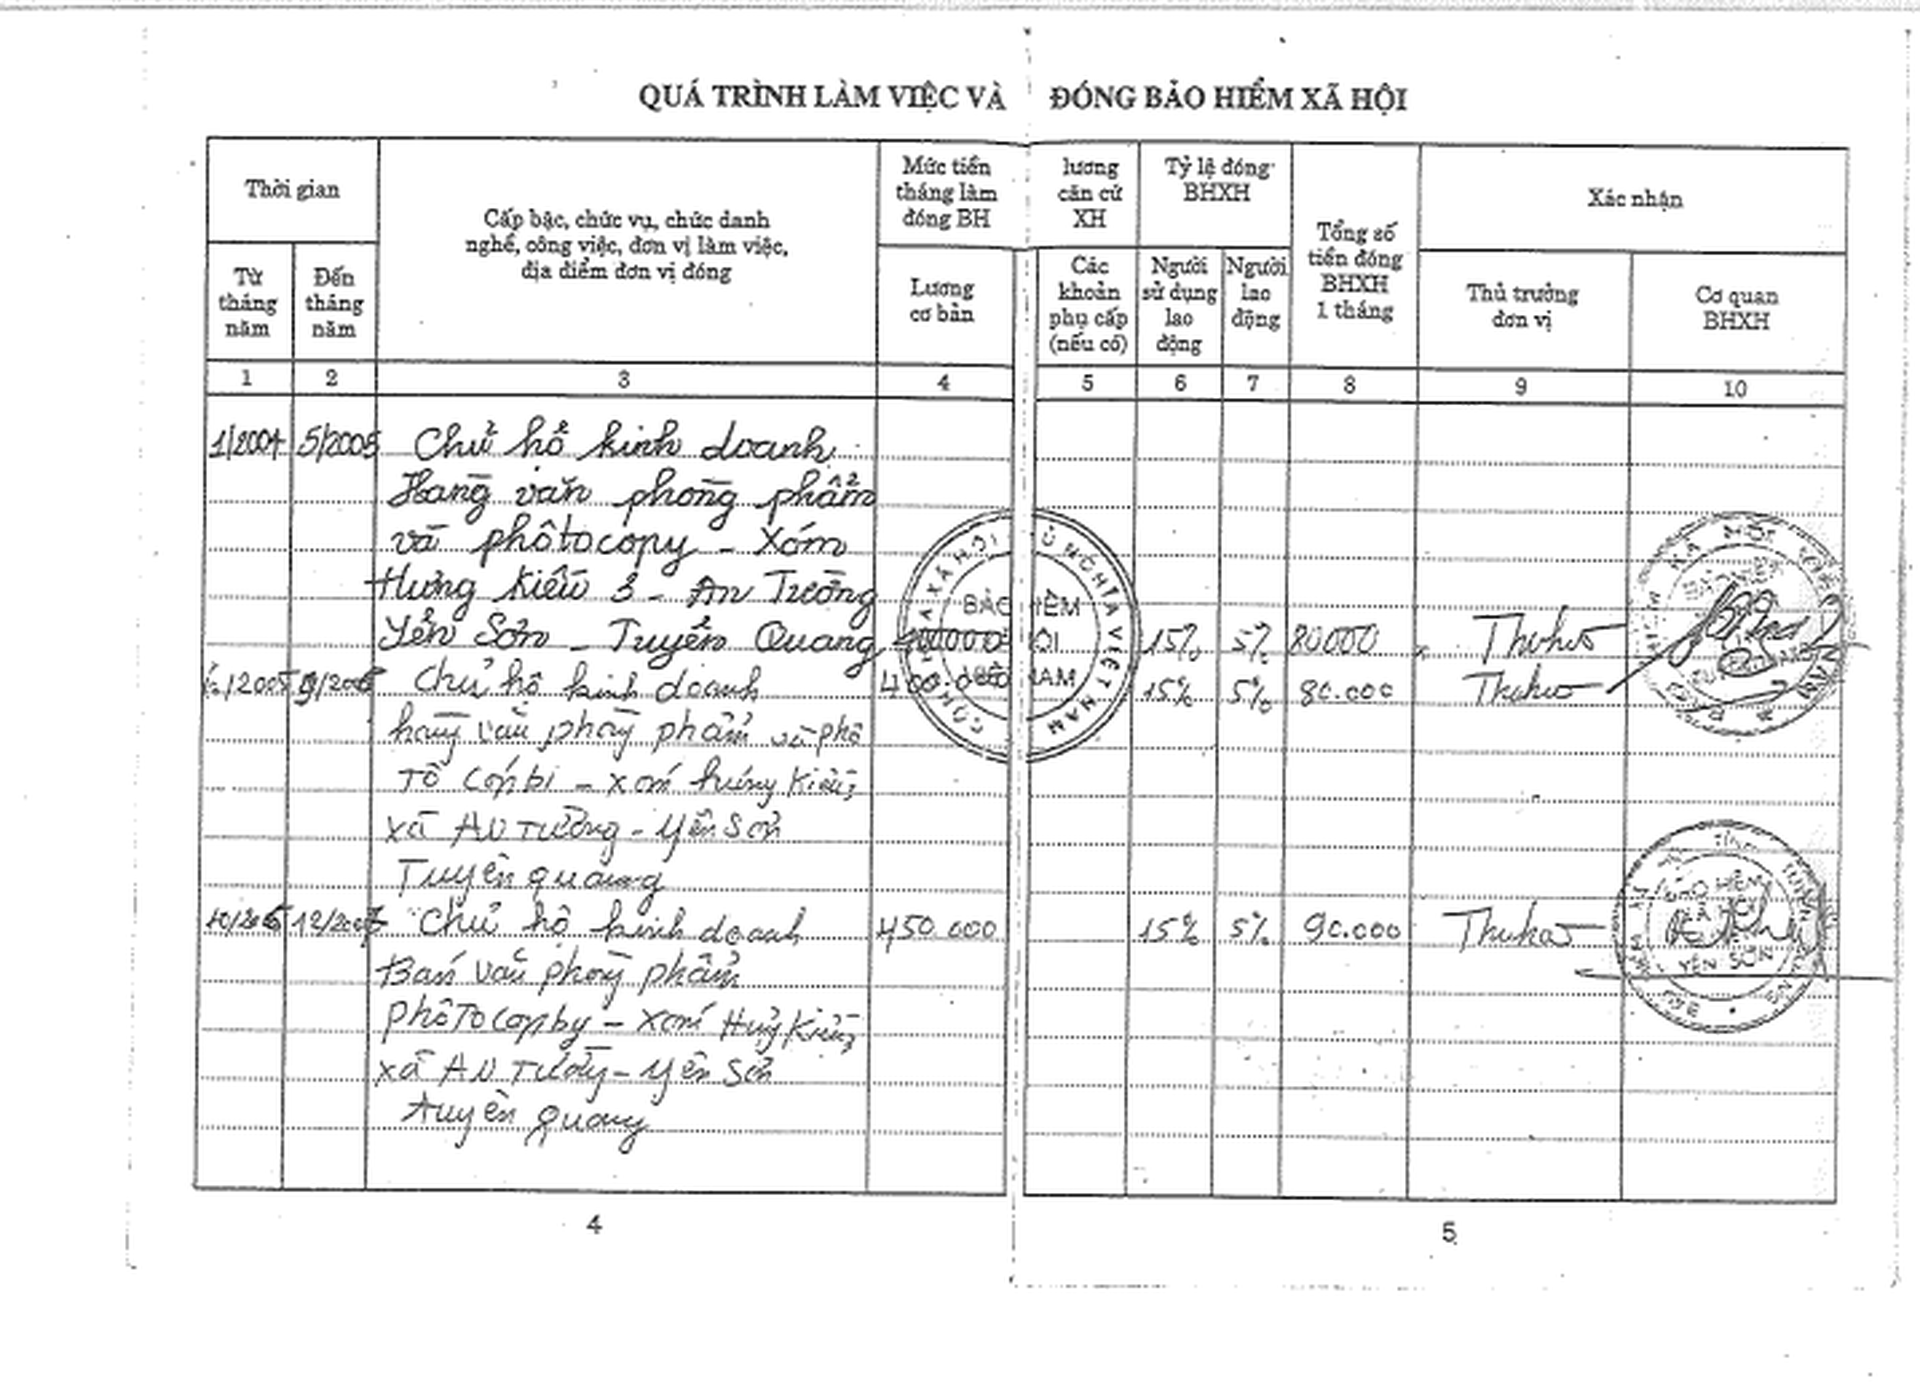 QUÁ TRÌNH LÀM VIỆC VÀ ĐÓNG BẢO HIỂM XÃ HỘI
Thời gian
Từ tháng năm
Đến tháng năm
Cấp bậc, chức vụ, chức danh
nghề, công việc, đơn vị làm việc,
địa điểm đơn vị đóng
Mức tiền lương
tháng làm căn cứ
đóng BHXH
Lương
cơ bản
Các
khoản
phụ cấp
(nếu có)
Tỷ lệ đóng
BHXH
Người
sử dụng
lao
động
Người
lao
động
Tổng số
tiền đóng
BHXH
1 tháng
Xác nhận
Thủ trưởng
đơn vị
Cơ quan
BHXH
1 2 3 4 5 6 7 8 9 10
1/2004 5/2005 Chủ hộ kinh doanh
Hàng văn phòng phẩm
và phôtocopy - Xóm
Hưng Kiều 3 - An Tường
Yên Sơn - Tuyên Quang 400000 15% 5% 80000
/2005 9/2005 Chủ hộ kinh doanh 400.000 15% 5% 80.000
hàng văn phòng phẩm và phô
tô cópbi - xóm hưng Kiều 3
xã An Tường - Yên Sơn
Tuyên quang
10/2005 12/2007 Chủ hộ kinh doanh 450.000 15% 5% 90.000
Bán văn phòng phẩm
phôtocopby - xóm Hưng Kiều 3
xã An Tường - Yên Sơn
tuyên quang
BẢO HIỂM
XÃ HỘI
VIỆT NAM
BẢO HIỂM
XÃ HỘI
YÊN SƠN
4 5